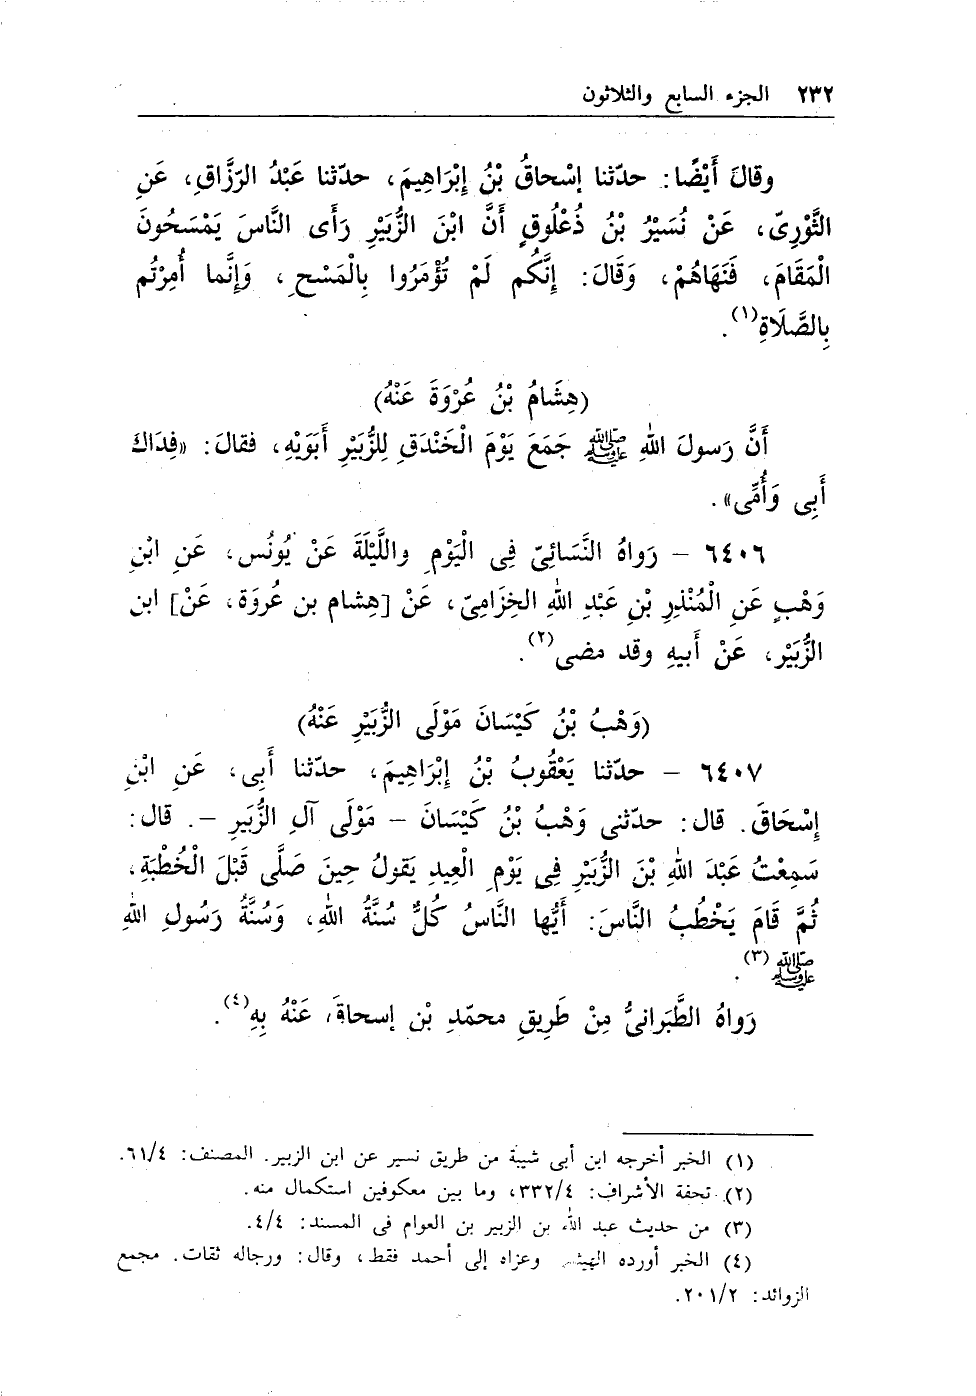 ٢٣٢ الجزء السابع والثلاثون
وقالَ أَيْضًا: حدّثنا إسْحاقُ بْنُ إِبْرَاهِيمَ، حدّثنا عَبْدُ الرّزَّاقِ، عَنِ
الثَّوْرِىّ، عَنْ نُسَيْرُ بْنُ ذُعْلُوقٍ أَنَّ ابْنَ الزُّبَيْرِ رَأَى النَّاسَ يَمْسَحُونَ
الْمَقَامَ، فَنَهَاهُمْ، وَقَالَ: إِنَّكُم لَمْ تُؤْمَرُوا بِالْمَسْحِ، وَإِنَّما أُمِرْتُم
بِالصَّلَاةِ(١).
(هِشَامُ بْنُ عُرْوَةَ عَنْهُ)
أَنَّ رَسولَ اللهِ ﷺ جَمَعَ يَوْمَ الْخَنْدَقِ لِلزُّبَيْرِ أَبَوَيْهِ، فقالَ: «فِدَاكَ
أَبِى وَأُمِّى».
٦٤٠٦ – رَواهُ النَّسَائِىّ فِى الْيَوْمِ واللَّيْلَةَ عَنْ يُونُس، عَنِ ابْنِ
وَهْبٍ عَنِ الْمُنْذِرِ بْنِ عَبْدِ اللهِ الحِزَامِىّ، عَنْ [هِشام بن عُروَة، عَنْ] ابن
الزُّبَيْر، عَنْ أَبيهِ وقد مضى(٢).
(وَهْبُ بْنُ كَيْسَانَ مَوْلَى الزُّبَيْرِ عَنْهُ)
٦٤٠٧ – حدّثنا يَعْقُوبُ بْنُ إِبْرَاهِيمَ، حدّثنا أَبِى، عَنِ ابْنِ
إِسْحَاقَ. قال: حدّثنى وَهْبُ بْنُ كَيْسَانَ – مَوْلَى آلِ الزُّبَيرِ –. قال:
سَمِعْتُ عَبْدَ اللهِ بْنَ الزُّبَيْرِ فِى يَوْمِ العِيدِ يَقولُ حِينَ صَلَّى قَبْلَ الْخُطْبَةِ،
ثُمَّ قَامَ يَخْطُبُ النَّاسَ: أَيُّها النَّاسُ كُلُّ سُنَّةُ اللهِ، وَسُنَّةُ رَسُولِ اللهِ
ﷺ(٣).
رَواهُ الطَّبَرانىُّ مِنْ طَرِيقِ محمّدِ بْنِ إسحاقَ، عَنْهُ بِهِ(٤).
(١) الخبر أخرجه ابن أبى شيبة من طريق نسير عن ابن الزبير. المصنف: ٦١/٤.
(٢) تحفة الأشراف: ٣٣٢/٤، وما بين معكوفين استكمال منه.
(٣) من حديث عبد الله بن الزبير بن العوام فى المسند: ٤/٤.
(٤) الخبر أورده وعزاه إلى أحمد فقط، وقال: ورجاله ثقات. مجمع
الزوائد: ٢٠١/٢.